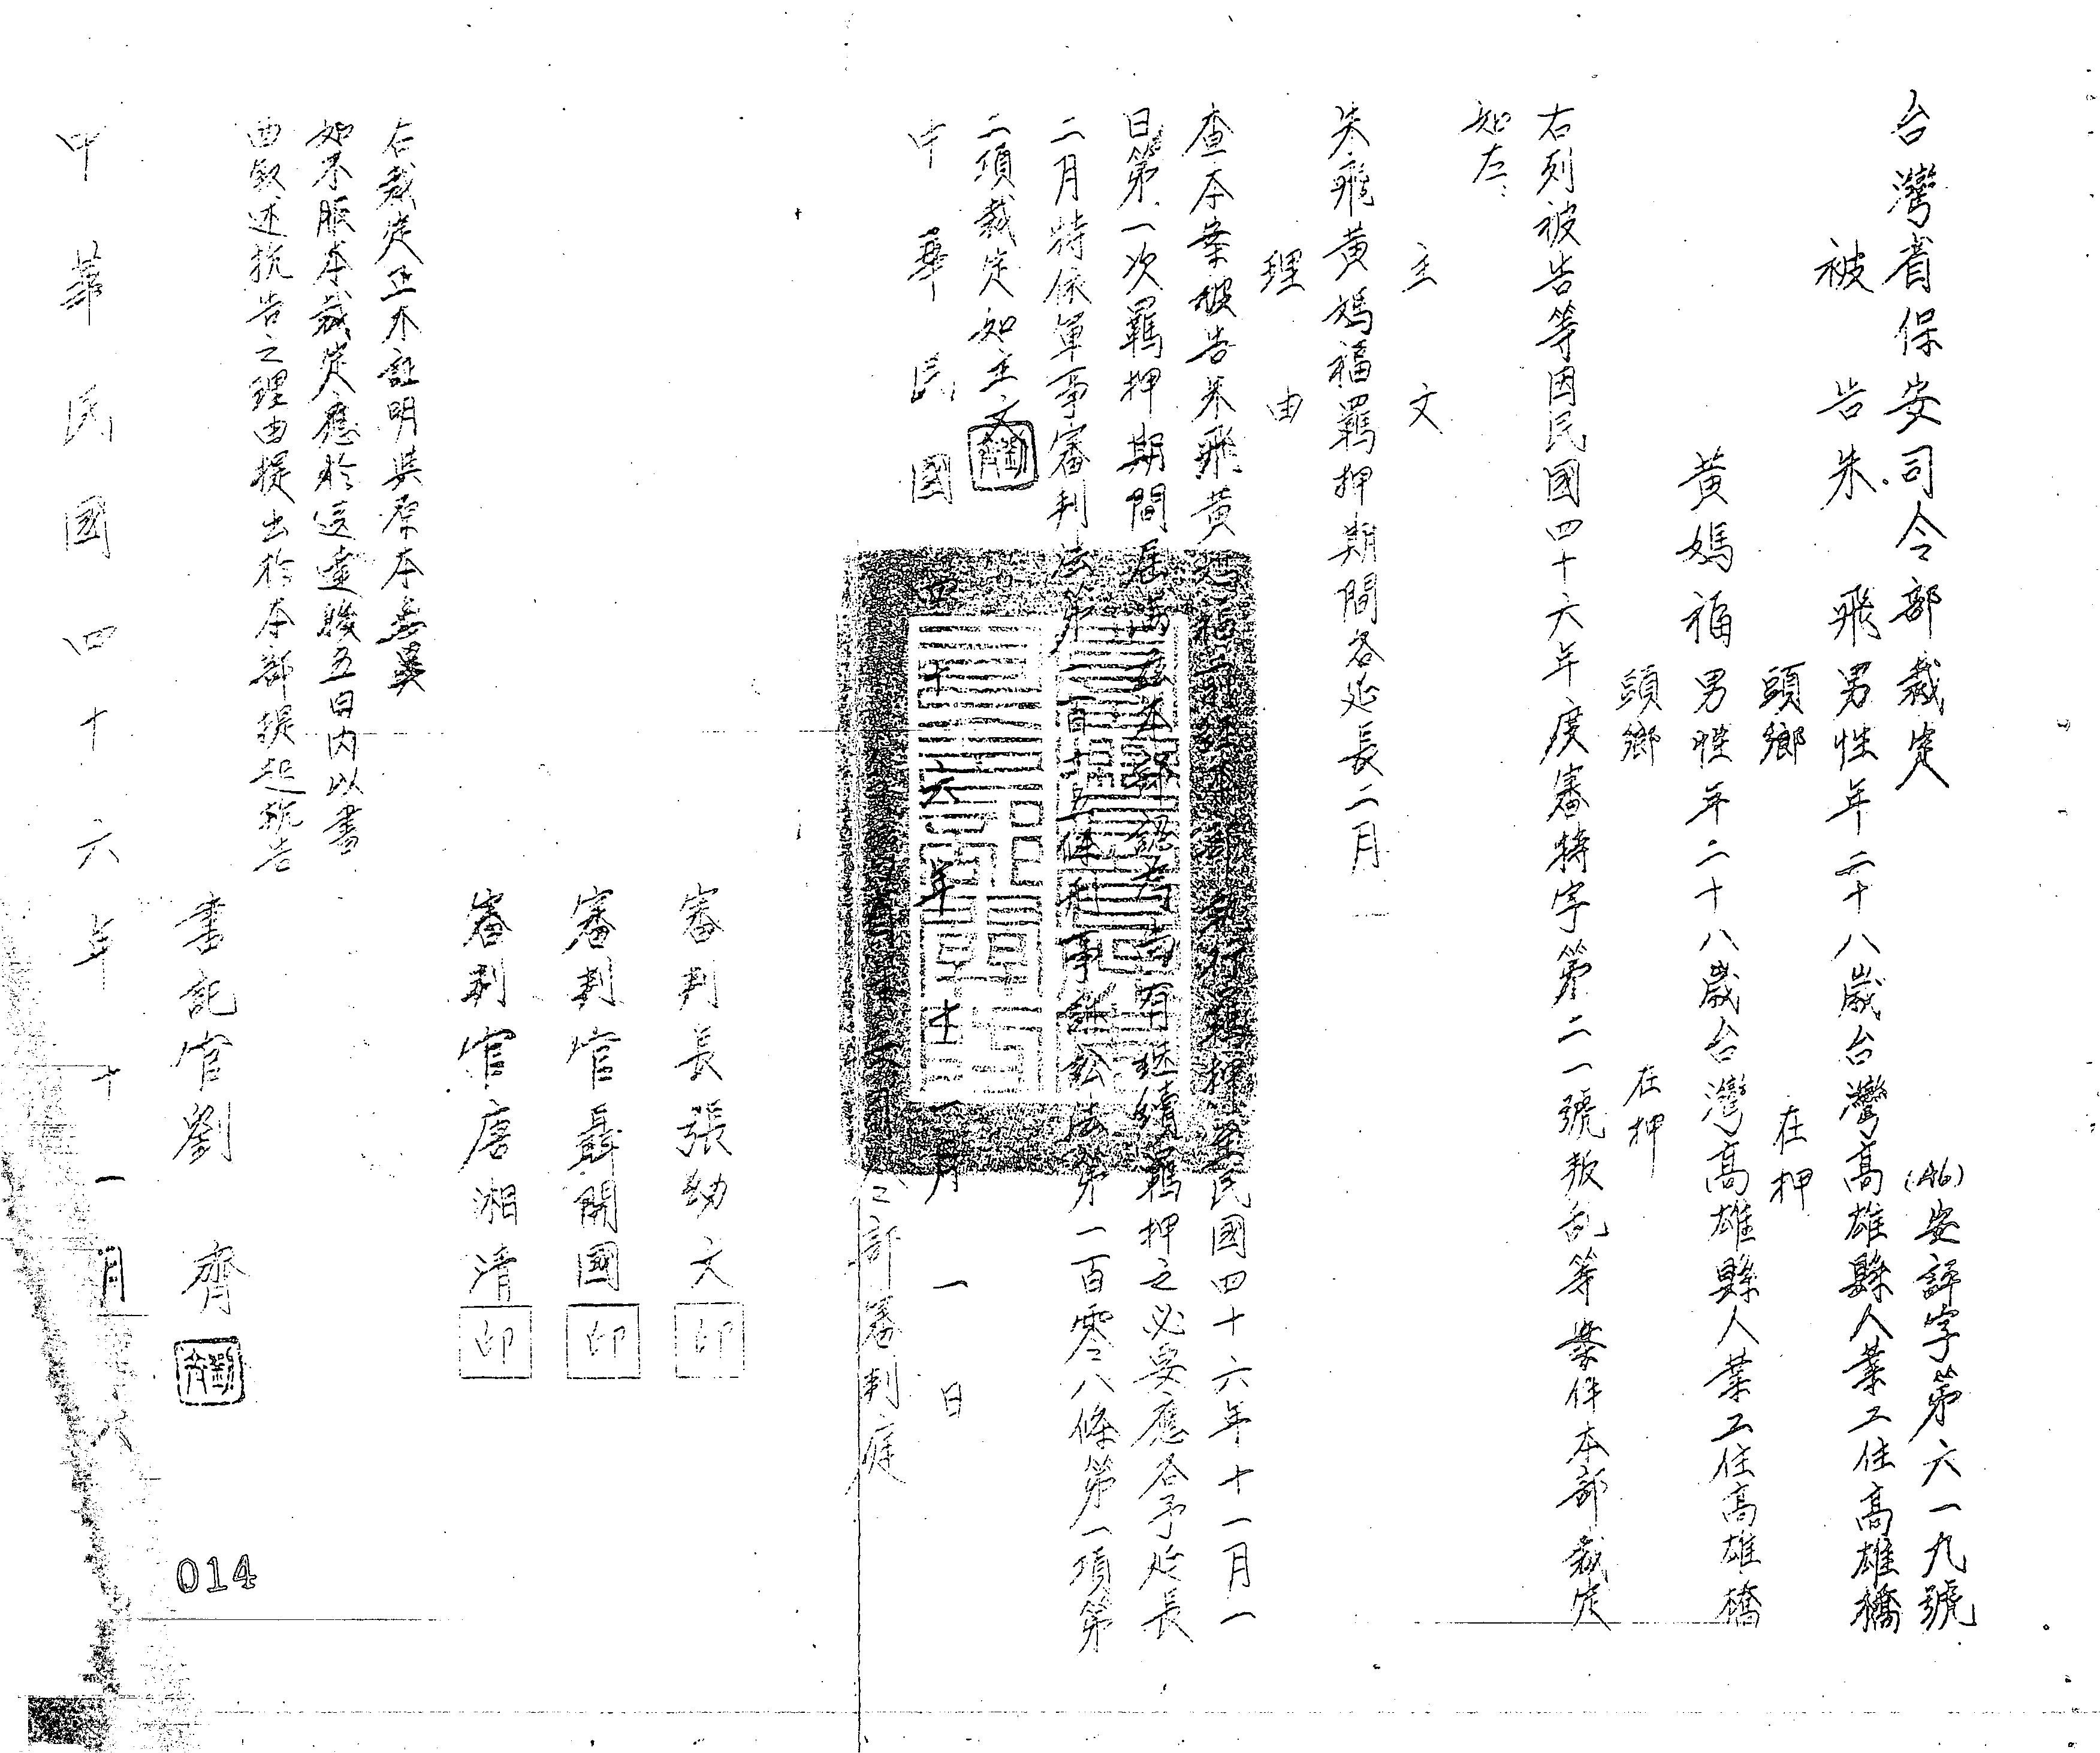 台灣省保安司令部裁定
(46)安評字第六一九號
被告朱飛男性年二十八歲台灣高雄縣人業工住高雄橋
頭鄉 在押
黃媽福男性年二十八歲台灣高雄縣人業工住高雄橋
頭鄉 在押
右列被告等因民國四十六年度審特字第二一號叛乱等案件本部裁定
如左：
主文
朱飛黃媽福羈押期間各延長二月
理由
查本案被告朱飛黃媽福前經本部執行羈押至民國四十六年十一月一
日第一次羈押期間屆滿茲本部認為尚有繼續羈押之必要應各予延長
二月特依軍事審判法第一百十五條刑事訴訟法第一百零八條第一項第
二項裁定如主文
中華民國四十六年十一月一日
令部審判庭
審判長張幼文印
審判官聶開國印
審判官唐湘清印
右裁定正本証明與原本無異
如不服本裁定應於送達後五日內以書
面敘述抗告之理由提出於本部提起抗告
書記官劉齊
中華民國四十六年十一月六
014